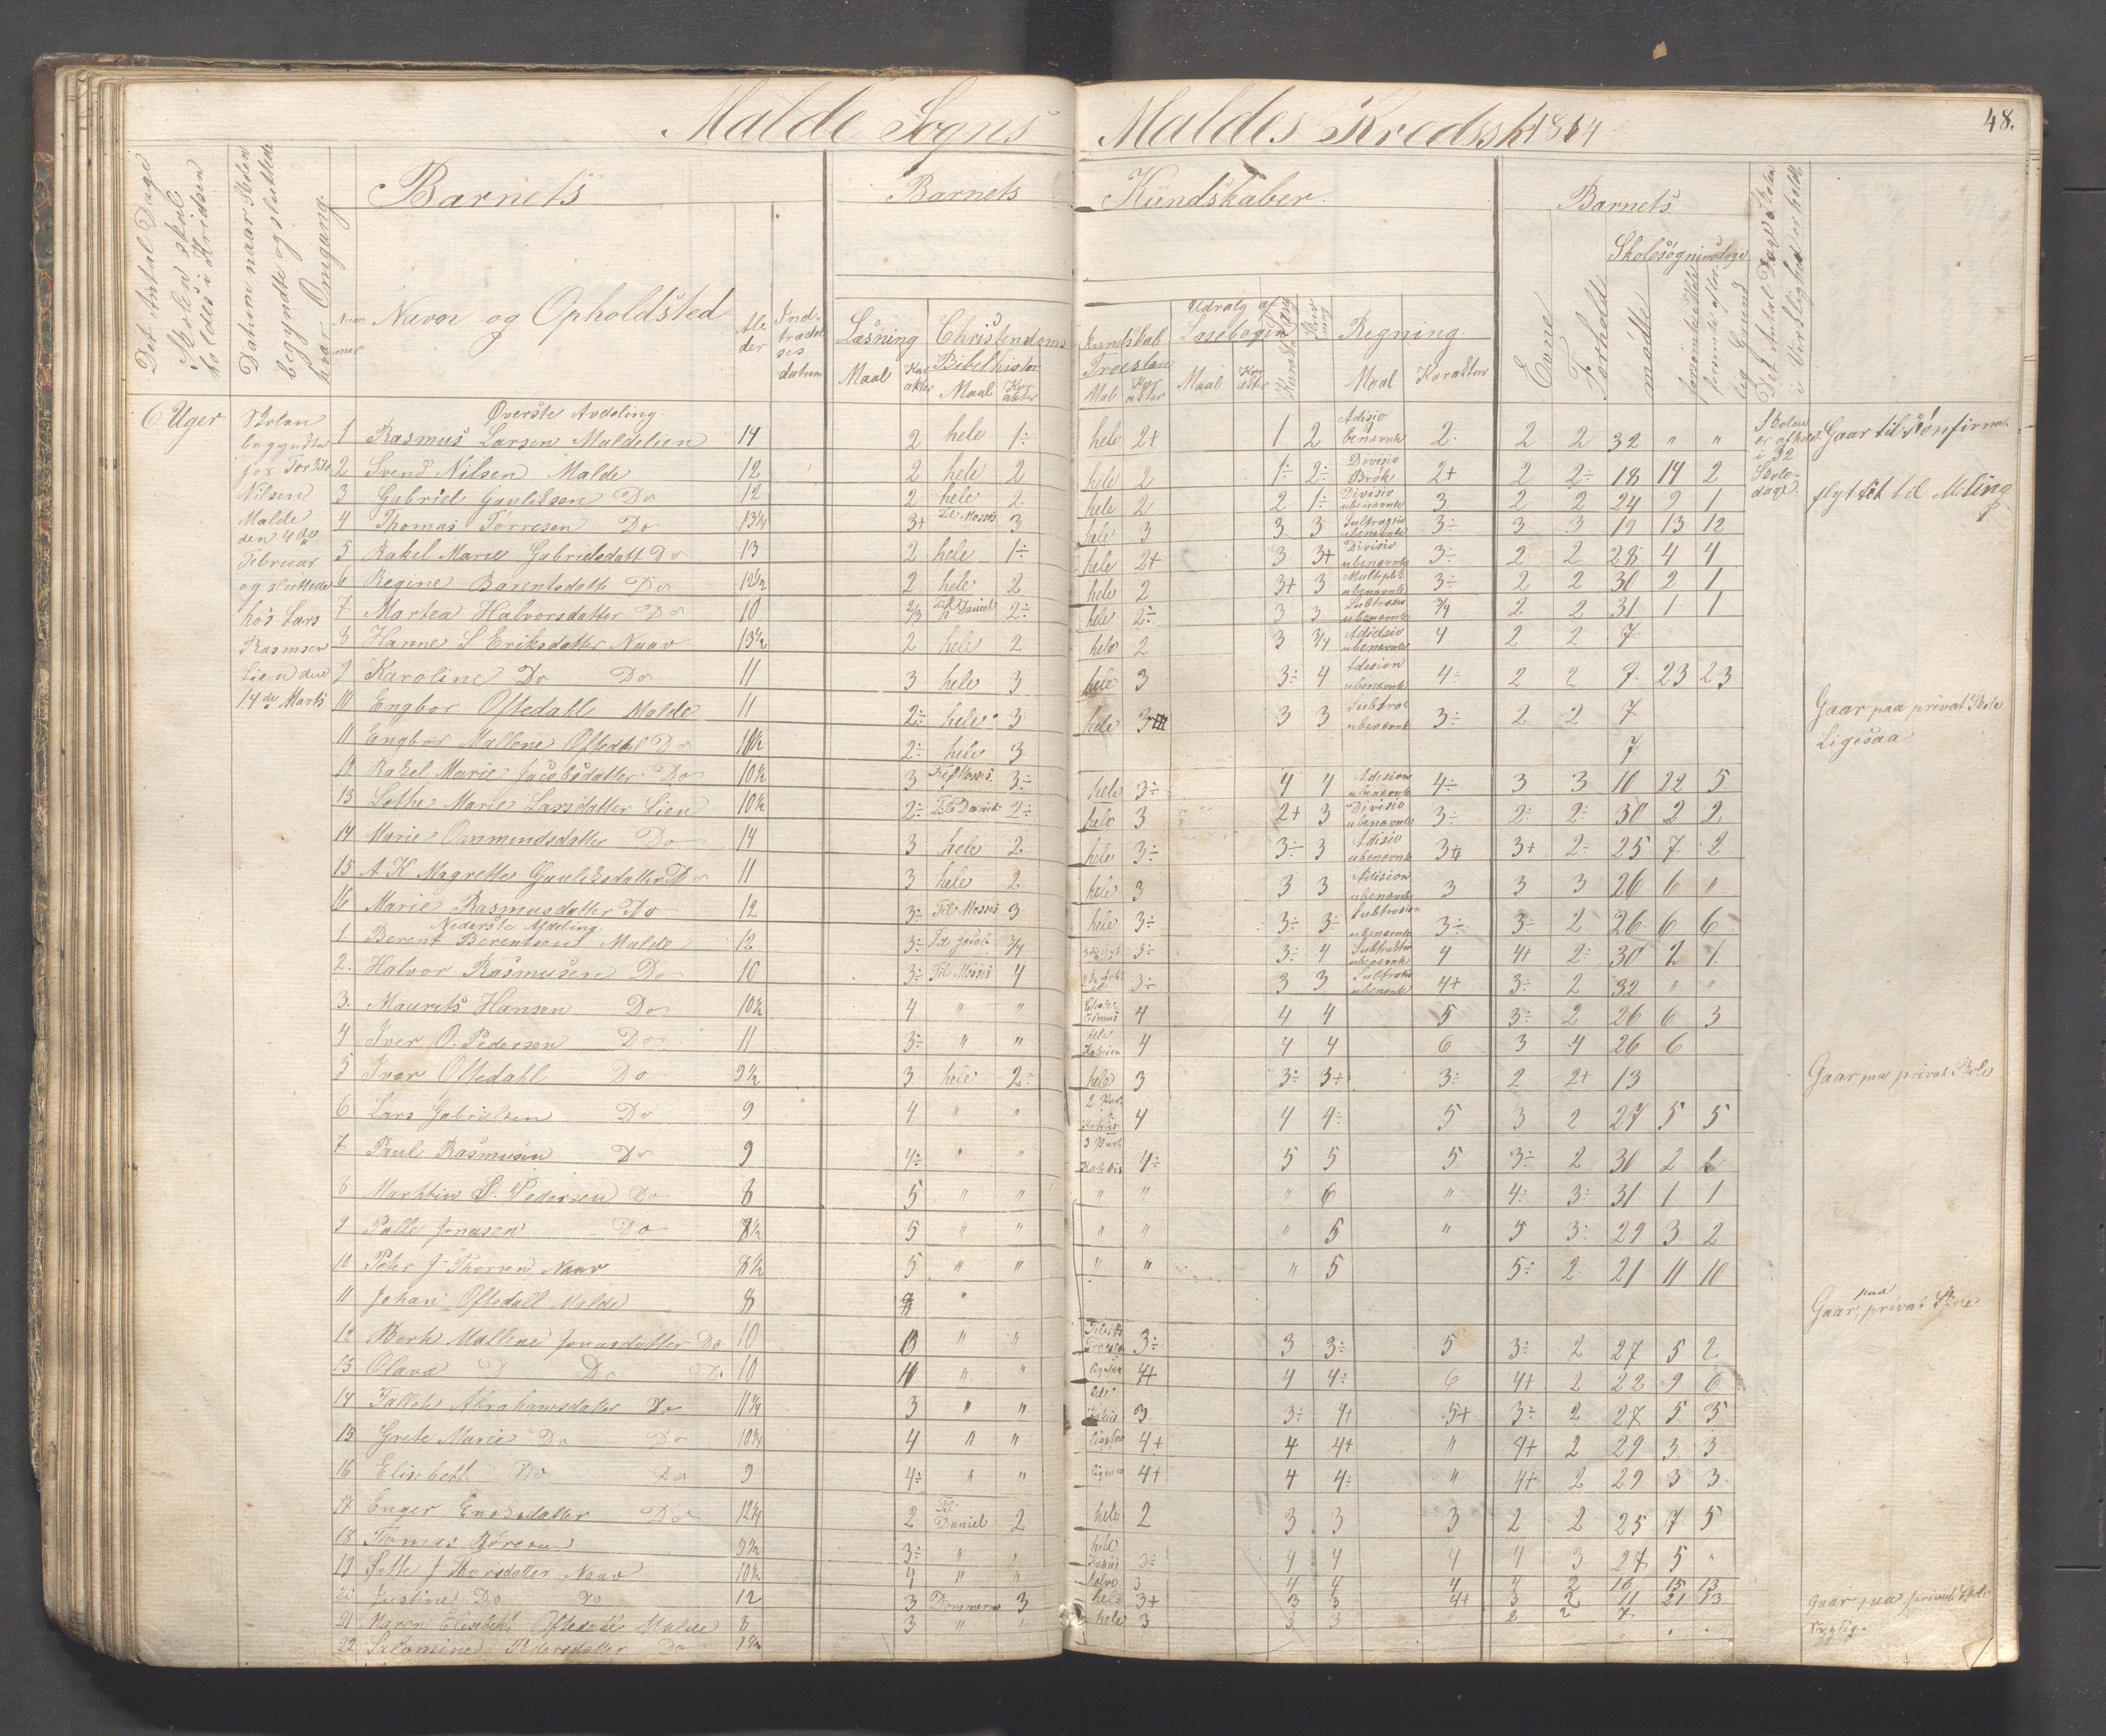 Malde Sogns Maldes Kredssk 1864
48.
Det Antal Dage Skolen skal holdes i Kredsen
Datum naar Skolen begyndte og sluttede hver Omgang
Barnets
Barnets Kundskaber
Barnets
Skolesøgningsdage
Det Antal Dage Skolen i Virkelighed er holdt
Num mer
Navn og Opholdsted
Al der
Ind trædel ses datum
Læsning
Christendoms Kundskab
Udvalg af Læsebogen
Regning
Maal
Kar akter
Bibelhistor
Maal
Kar akter
Troeslære
Maal
Kar akter
Maal
Kar akter
Sang
Karakter
Maal
Karakter
Evne
Forholdsmaade
6 Uger
Skolen begyndte
Nilsen
Malde
den 4de
Februar
og sluttede
hos Lars
Rasmsen
Lien den
14de Marts
Skolen er afholdt i 32 Skoledage
Øverste Avdeling
1 Rasmus Larsen Maldelien 14 2 hele 1÷ hele 2+ 1 2 Adisio benævnte 2 2 2 32 " " Gaar til Konfirmat
2 Svend Nilsen Malde 12 2 hele 2 hele 2 1÷ 2÷ Divisio Brøk 2+ 2 2÷ 18 14 2
3 Gabriel Gauleksen Do 12 2 hele 2 hele 2 2 1÷ Divisio ubenævnte 3 2 2 24 9 1 flyttet til Meling
4 Thomas Torresen Do 13¼ 3+ Til Mosses 3 hele 3 3 3 ubenævnte 3÷ 3 3 19 13 12
5 Rakel Marie Gabrielsdatt Do 13 2 hele 1÷ hele 2+ 3 3+ Divisio ubenævnte 3÷ 2 2 28 4 4
6 Regine Barentsdatte Do 12½ 2 hele 2 hele 2 3+ 3 Multipli ubenævnte 3÷ 2 2 30 2 1
7 Martea Halvorsdatter Do 10 2/3 Til Daniel 2÷ hele 2÷ 3 3 ubenævnte 3/4 2 2 31 1 1
8 Hanne S Eriksdatter Naav 13½ 2 hele 2 hele 2 3 3/4 Adidsio ubenævnte 4 2 2 7
9 Karoline Do Do 11 3 hele 3 hele 3 3÷ 4 Adision ubenævnte 4÷ 2 2 9 23 23
10 Engbor Oftedahl Malde 11 2÷ hele 3 hele 3 3 3 Subtrac ubenævnte 3÷ 2 2 7 Gaar paa privat Skole
11 Engbor Mallene Oftedal Do 2÷ hele 3 7 Ligesaa
12 Rakel Marie Jacobsdatter Do 10½ 3 Til Moses 3÷ hele 3÷ 4 4 Adision ubenævnte 4÷ 3 3 10 22 5
13 Lethe Marie Larsdatter Lien 10½ 2÷ 2÷ hele 3 2+ 3 Divisio ubenævnte 3÷ 2÷ 2÷ 30 2 2
14 Marie Ommundsdatter Do 14 3 hele 2 hele 3÷ 3÷ 3 Adisio ubenævnte 3+ 2÷ 25 7 2
15 A K Magrette Gauleksdatter Do 11 3 hele 2 hele 3 3 3 Adision ubenævnte 3 3 3 26 6 "
16 Marie Rasmusdatter Do 12 3÷ Til Mosses 3 hele 3÷ 3÷ 3÷ Subtrasion ubenævnte 3÷ 3÷ 2 26 6 6
Nederste Afdeling
1 Berent Berentsen Malde 12 3÷ Til Jacob 3/4 3÷ 3÷ 4 Subtraktion ubenævnte 4 4+ 2÷ 30 2 1
2. Halvor Rasmusen Do 10 3÷ Til Mosses 4 3÷ 3 3 ubenævnte 4+ 3÷ 2 32 " "
3. Maurits Hansen Do 10½ 4 " " 4 4 4 5 3÷ 2 26 6 3
4 Iver O. Pedersen Do 11 3÷ " " hele 4 4 4 6 3 4 26 6
5 Ivar Oftedahl Do 9½ 3 hele 2÷ hele 3 3÷ 3+ 3÷ 2 2+ 13 Gaar paa privat Skole
6 Lars Gabrielsen Do 9 4 " " 2 Part 4 4 4÷ 5 3 2 27 5 5
7 Paul Rasmusen Do 9 4÷ " " 3 Part 4÷ 5 5 5 3÷ 2 30 2
8 Marthin S. Pedersen Do 8 5 " " " " " 6 " 4÷ 3÷ 31 1 1
9 Palle Jonasen Do 8½ 5 " " " " " 5 " 5 3÷ 29 3 2
10 Peter J Thorsen Naav 8½ 5 " " " " " 5 5÷ 2 21 11 10
11 Johan Oftedall Malde 8 " Gaar paa privat Skole
12 Berte Mallene Jonasdatter Do 10 " " 3÷ 3 3÷ 5 3÷ 2 27 5 2
13 Olava D Do Do 10 4 " " ligesaa 4+ 4 4÷ 6 4+ 2 22 9 6
14 Abrahamsdatter Do 11¼ 3 " " 3 3÷ 4+ 5+ 3÷ 2 27 5 5
15 Grete Marie Do Do 4 " " ligesaa 4+ 4 4+ " 4+ 2 29 3 3
16 Elisebett Do Do 9 4÷ " " ligesaa 4+ 4 4÷ " 4+ 2 29 3 3
17 Enger Enoksdatter Do 12¼ 2 Til Daniel 2 hele 2 3 3 3 2 2 25 7 5
18 Tomas 9½ 3÷ " " hele 3÷ 4 4 4 4 3 27 5 "
19 J Thorsdatter Naav 10½ 4 " " halve 3 4 4 4 4 2 16 15 13
20 Justine Do Do 12 3 Dommerne 3 hele 3+ 3 3 4+ 3 2 11 21 13
21 Maren Elisabeth Oftedal Malde 8 3 " hele 3 3 3 2 2 7 Gaar paa privat Skole
22 Salomine Pedersdatter Do